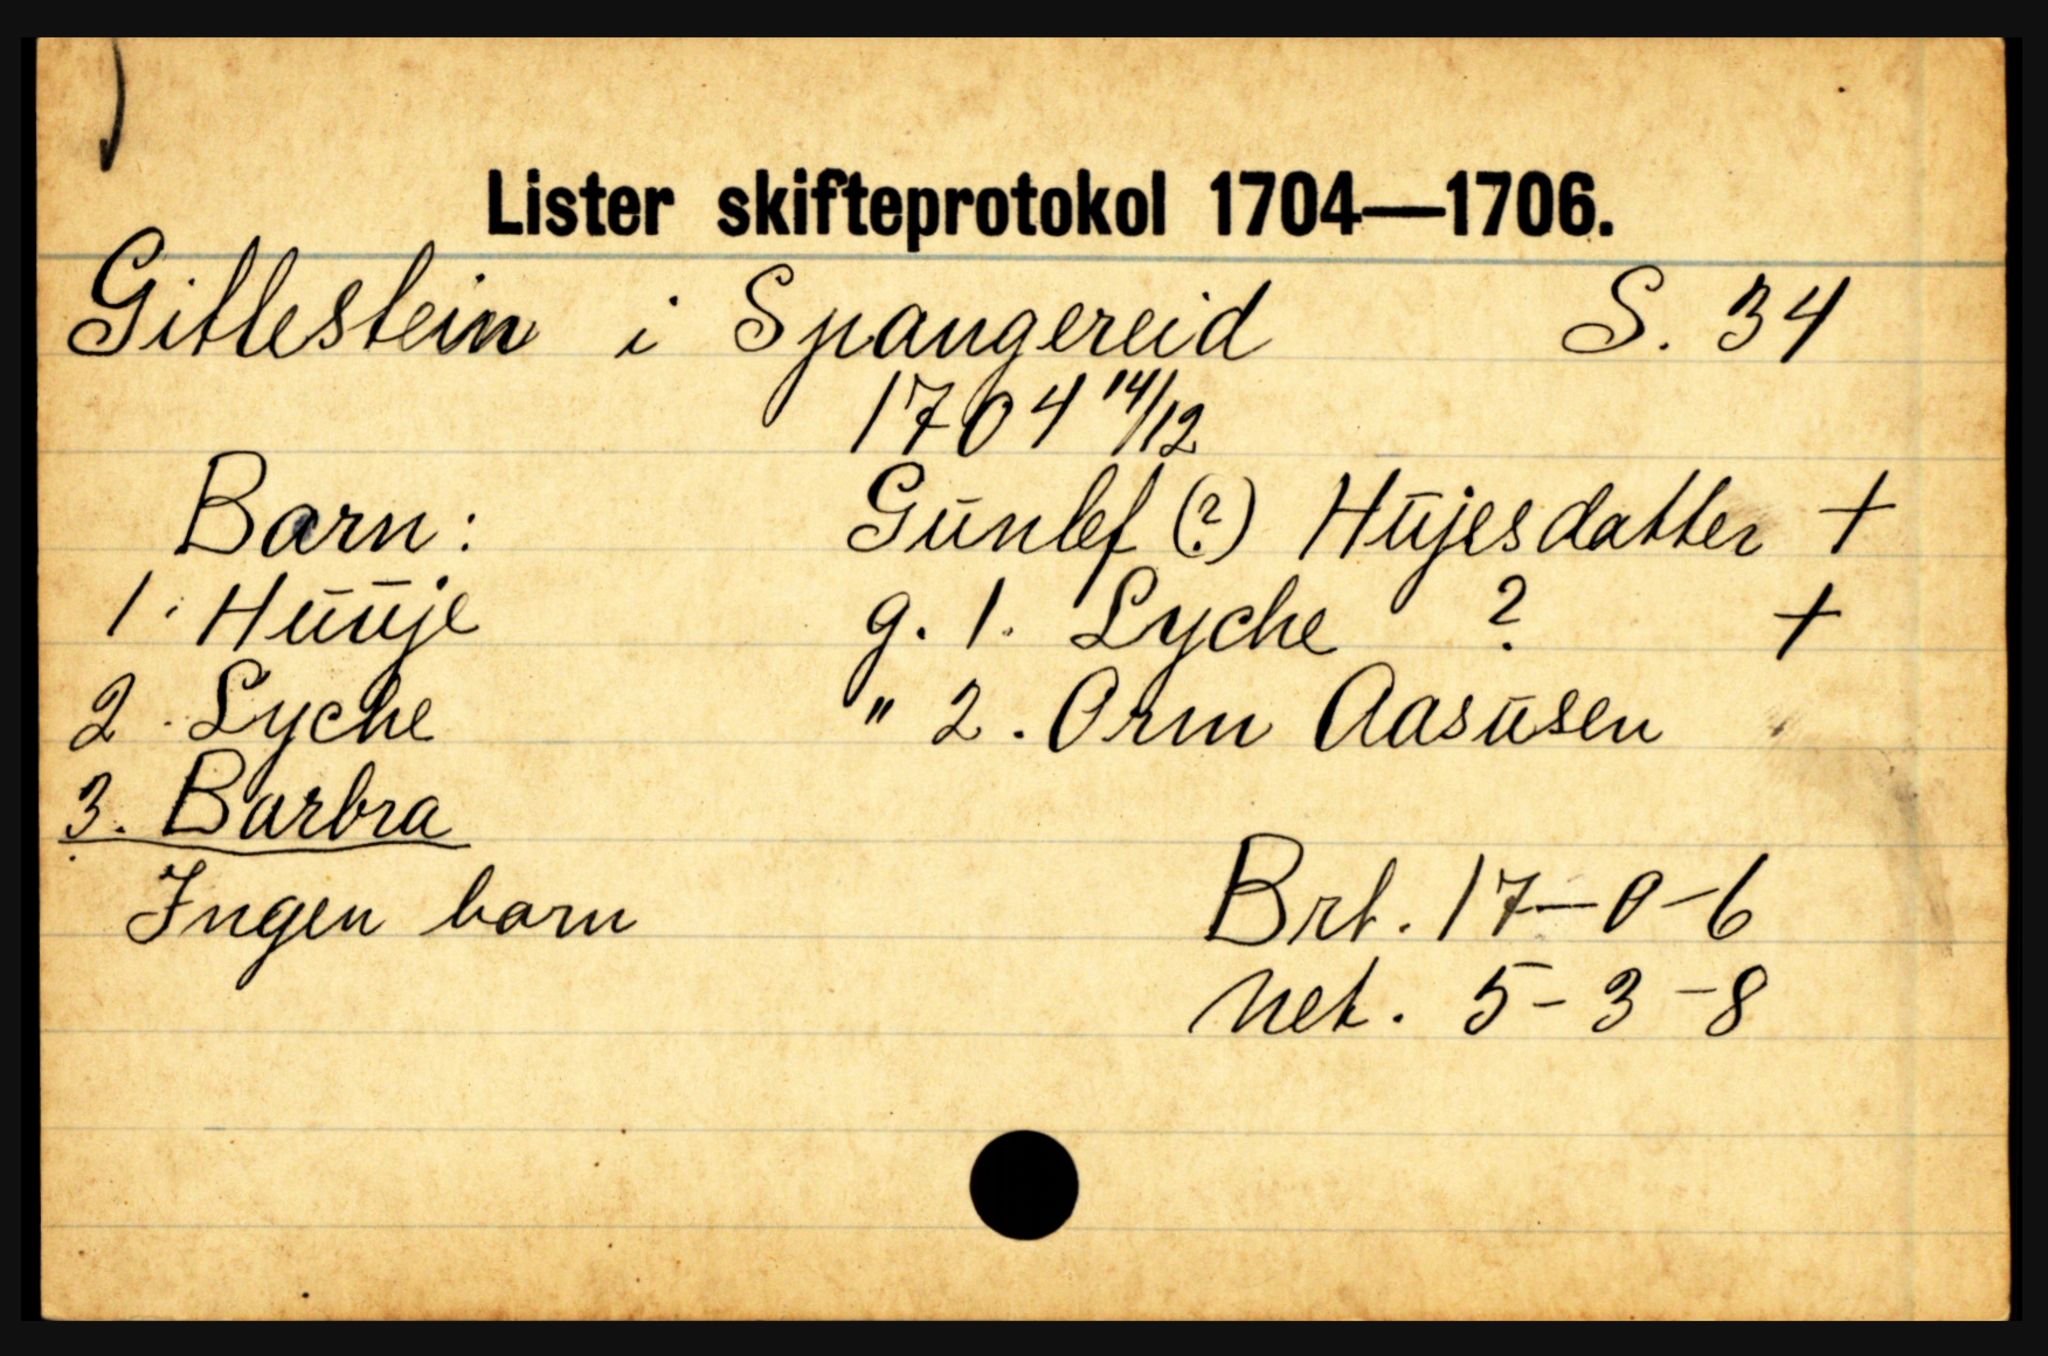 Lister skifteprotokol 1704—1706.
Gitlestein i Spangereid S. 34
1704 14/12
Barn: Gūnlef (?) Hūjesdatter +
1. Hūūje g. 1. Lyche ? +
2. Lyche " 2. Orm Aasūsen
3. Barbra
Ingen barn Brt. 17—0—6
Net. 5—3—8